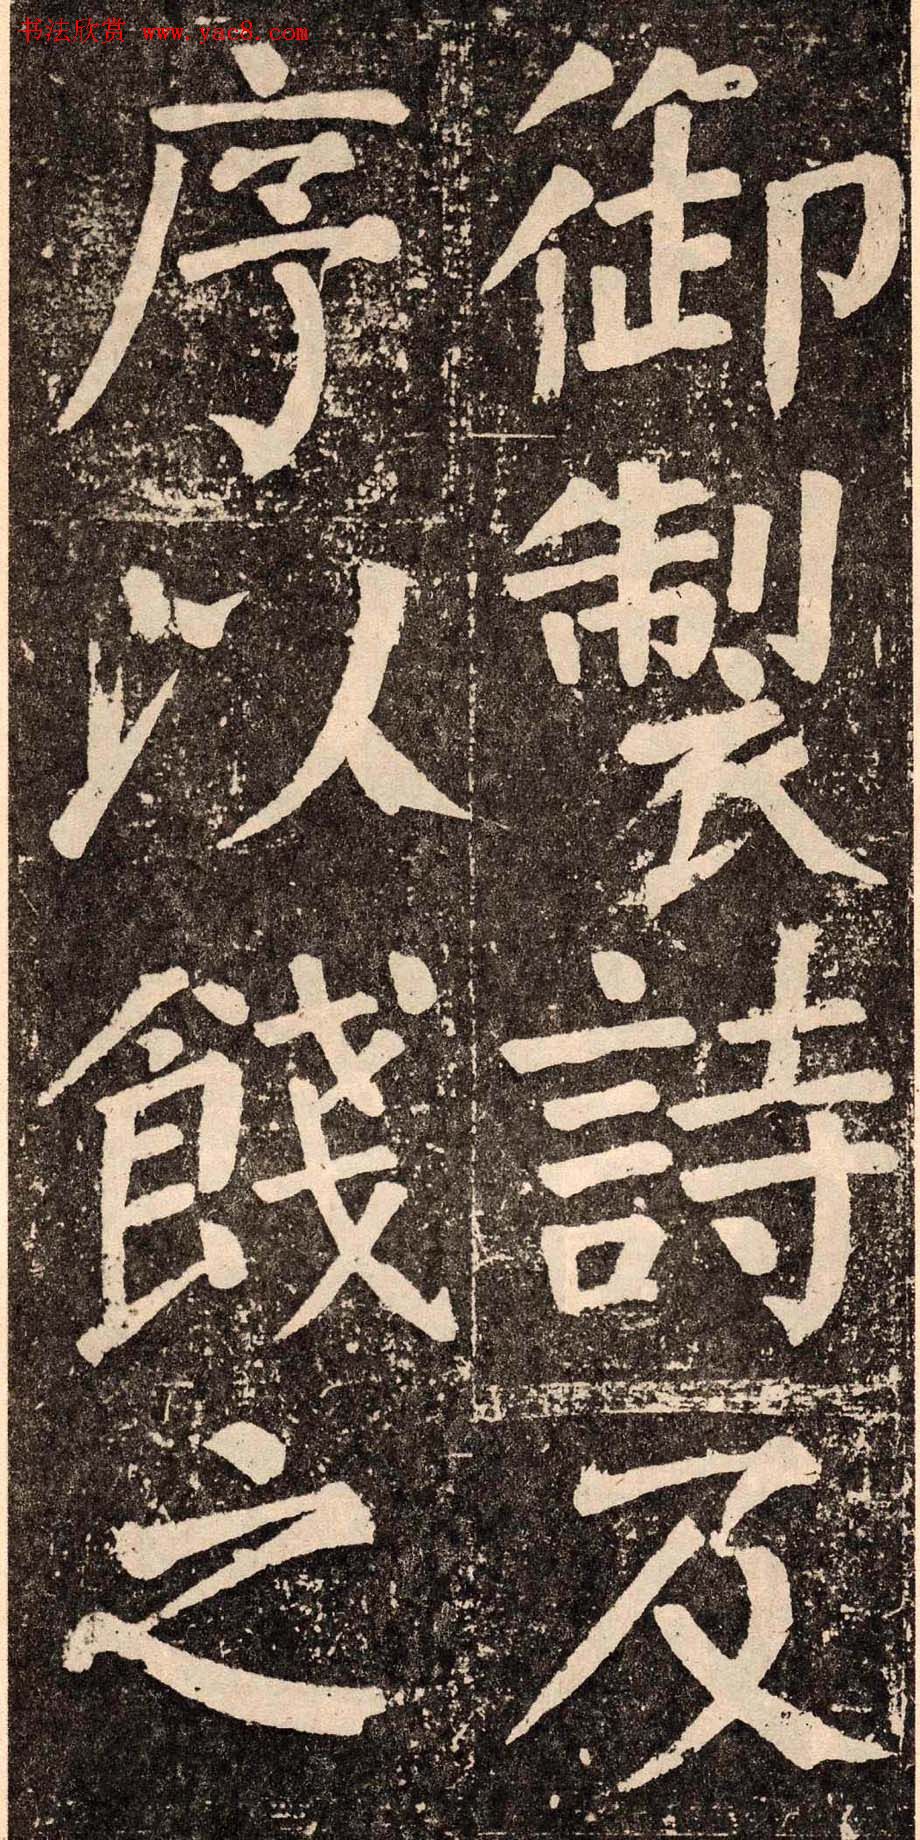 书法欣赏 www.yac8.com
御製詩及
序以餞之